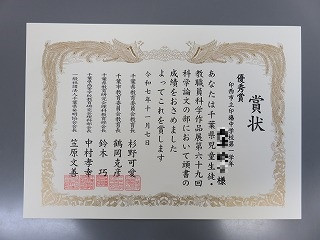 賞状
優秀賞
印西市立印旛中学校第一学年
様
あなたは千葉県児童生徒・
教職員科学作品展第六十九回
科学論文の部において頭書の
成績をおさめました
よってこれを賞します
令和七年十一月七日
千葉県教育委員会教育長 杉野可愛
千葉市教育委員会教育長 鶴岡克彦
千葉県教育研究会理科教育部会長 鈴木巧
中村孝幸
一般社団法人千葉県発明協会会長 笠原文善